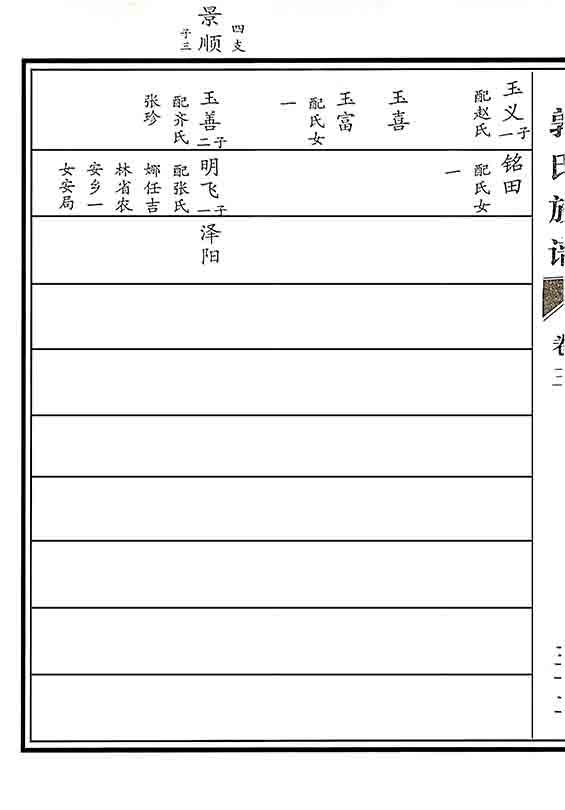 四支
景顺
子三
郭氏族谱
卷
玉义
一子
配赵氏
玉喜
玉富
配氏女
一
玉善
二子
配齐氏
张珍
铭田
配氏女
一
明飞
一子
配张氏
娜任吉
林省农
安乡一
女安局
泽阳